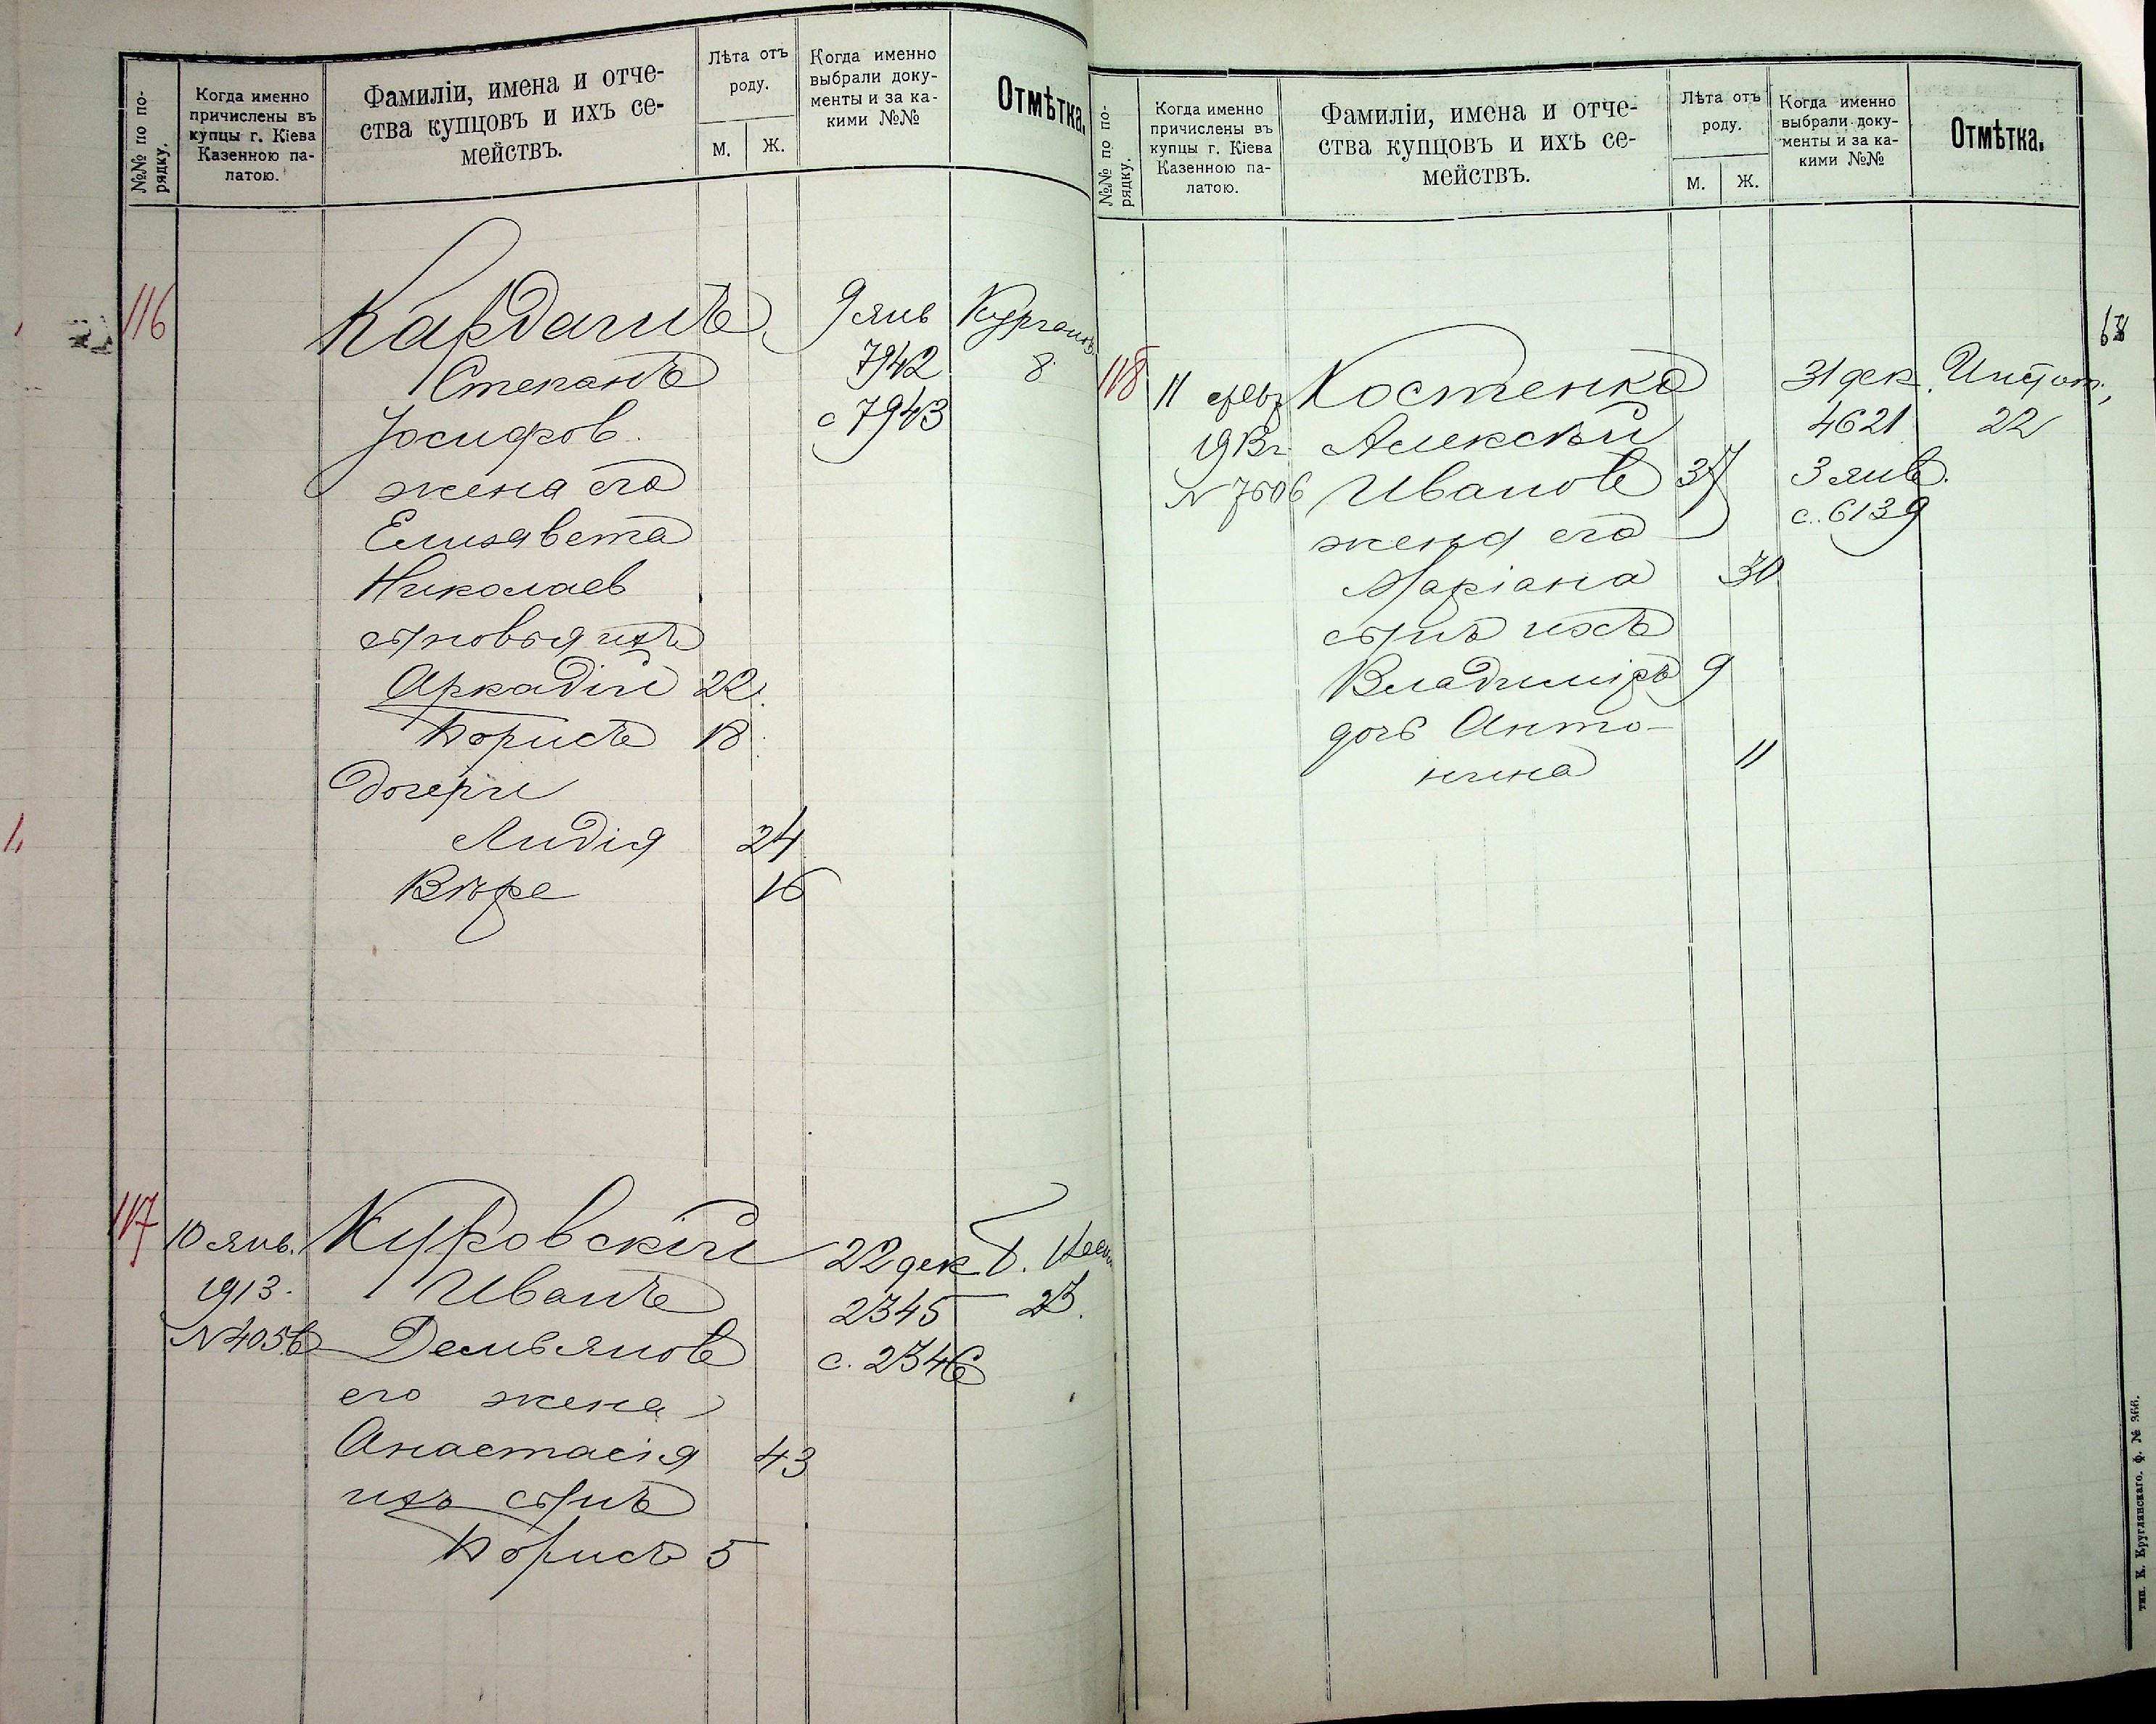 №№ по по-
рядку.
Когда именно
причислены въ
купцы г. Кіева
Казенною па-
латою.
Фамиліи, имена и отче-
ства купцовъ и ихъ се-
мействъ.
Лѣта отъ
роду.
М.
Ж.
Когда именно
выбрали доку-
менты и за ка-
кими №№
Отмѣтка.
116
9 янв
7942
с 7943
8.
Степанъ
Іосифов.
жена его
Елизавета
Николаев
сыновья ихъ
Аркадій 22.
Борисъ 18
дочери
Лидія 24
Вѣра 16
117
10 янв.
1913.
Куровскій
Иванъ
Демьянов
его жена
Анастасія 43
ихъ сынъ
Борисъ 5
22 дек
2345
с. 2346
23.
№№ по по-
рядку.
Когда именно
причислены въ
купцы г. Кіева
Казенною па-
латою.
Фамиліи, имена и отче-
ства купцовъ и ихъ се-
мействъ.
Лѣта отъ
роду.
М.
Ж.
Когда именно
выбрали доку-
менты и за ка-
кими №№
Отмѣтка.
118
11 февр
1913 г.
N 7506
Костенко
Алексѣй
Иванов 37
жена его
Маріана 30
сынъ ихъ
Владиміръ 9
дочь Анто-
нина 11
31 дек.
4621
3 янв.
с. 6139
22
тип. К. Круглянскаго. ф. № 366.